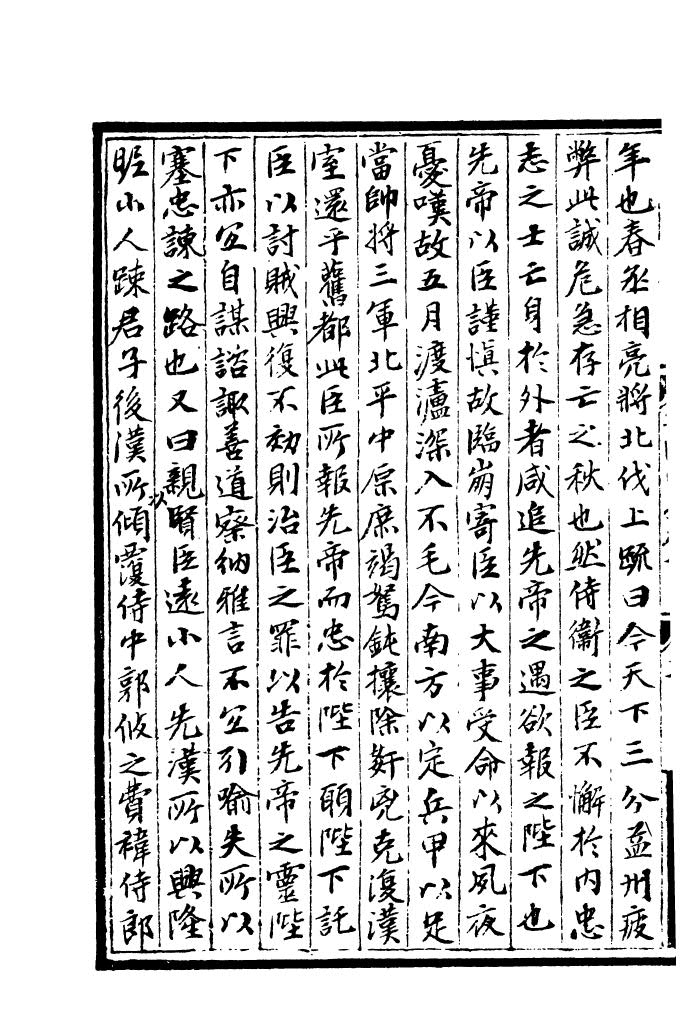 年也春丞相亮將北伐上䟽曰今天下三分益州疲
弊此誠危急存亡之秋也然侍衞之臣不懈於内忠
志之士亡身於外者咸追先帝之遇欲報之陛下也
先帝以臣謹愼故臨崩寄臣以大事受命以來夙夜
憂嘆故五月渡瀘深入不毛今南方以定兵甲以足
當帥將三軍北平中原庶竭駑鈍攘除姧兇克復漢
室還乎舊都此臣所報先帝而忠於陛下願陛下託
臣以討賊興復不効則治臣之罪以告先帝之靈陛
下亦宜自謀諮諏善道察納雅言不宜引喻失所以
塞忠諫之路也又曰親賢臣遠小人先漢所以興隆
昵小人踈君子後漢所以傾覆侍中郭攸之費禕侍郎